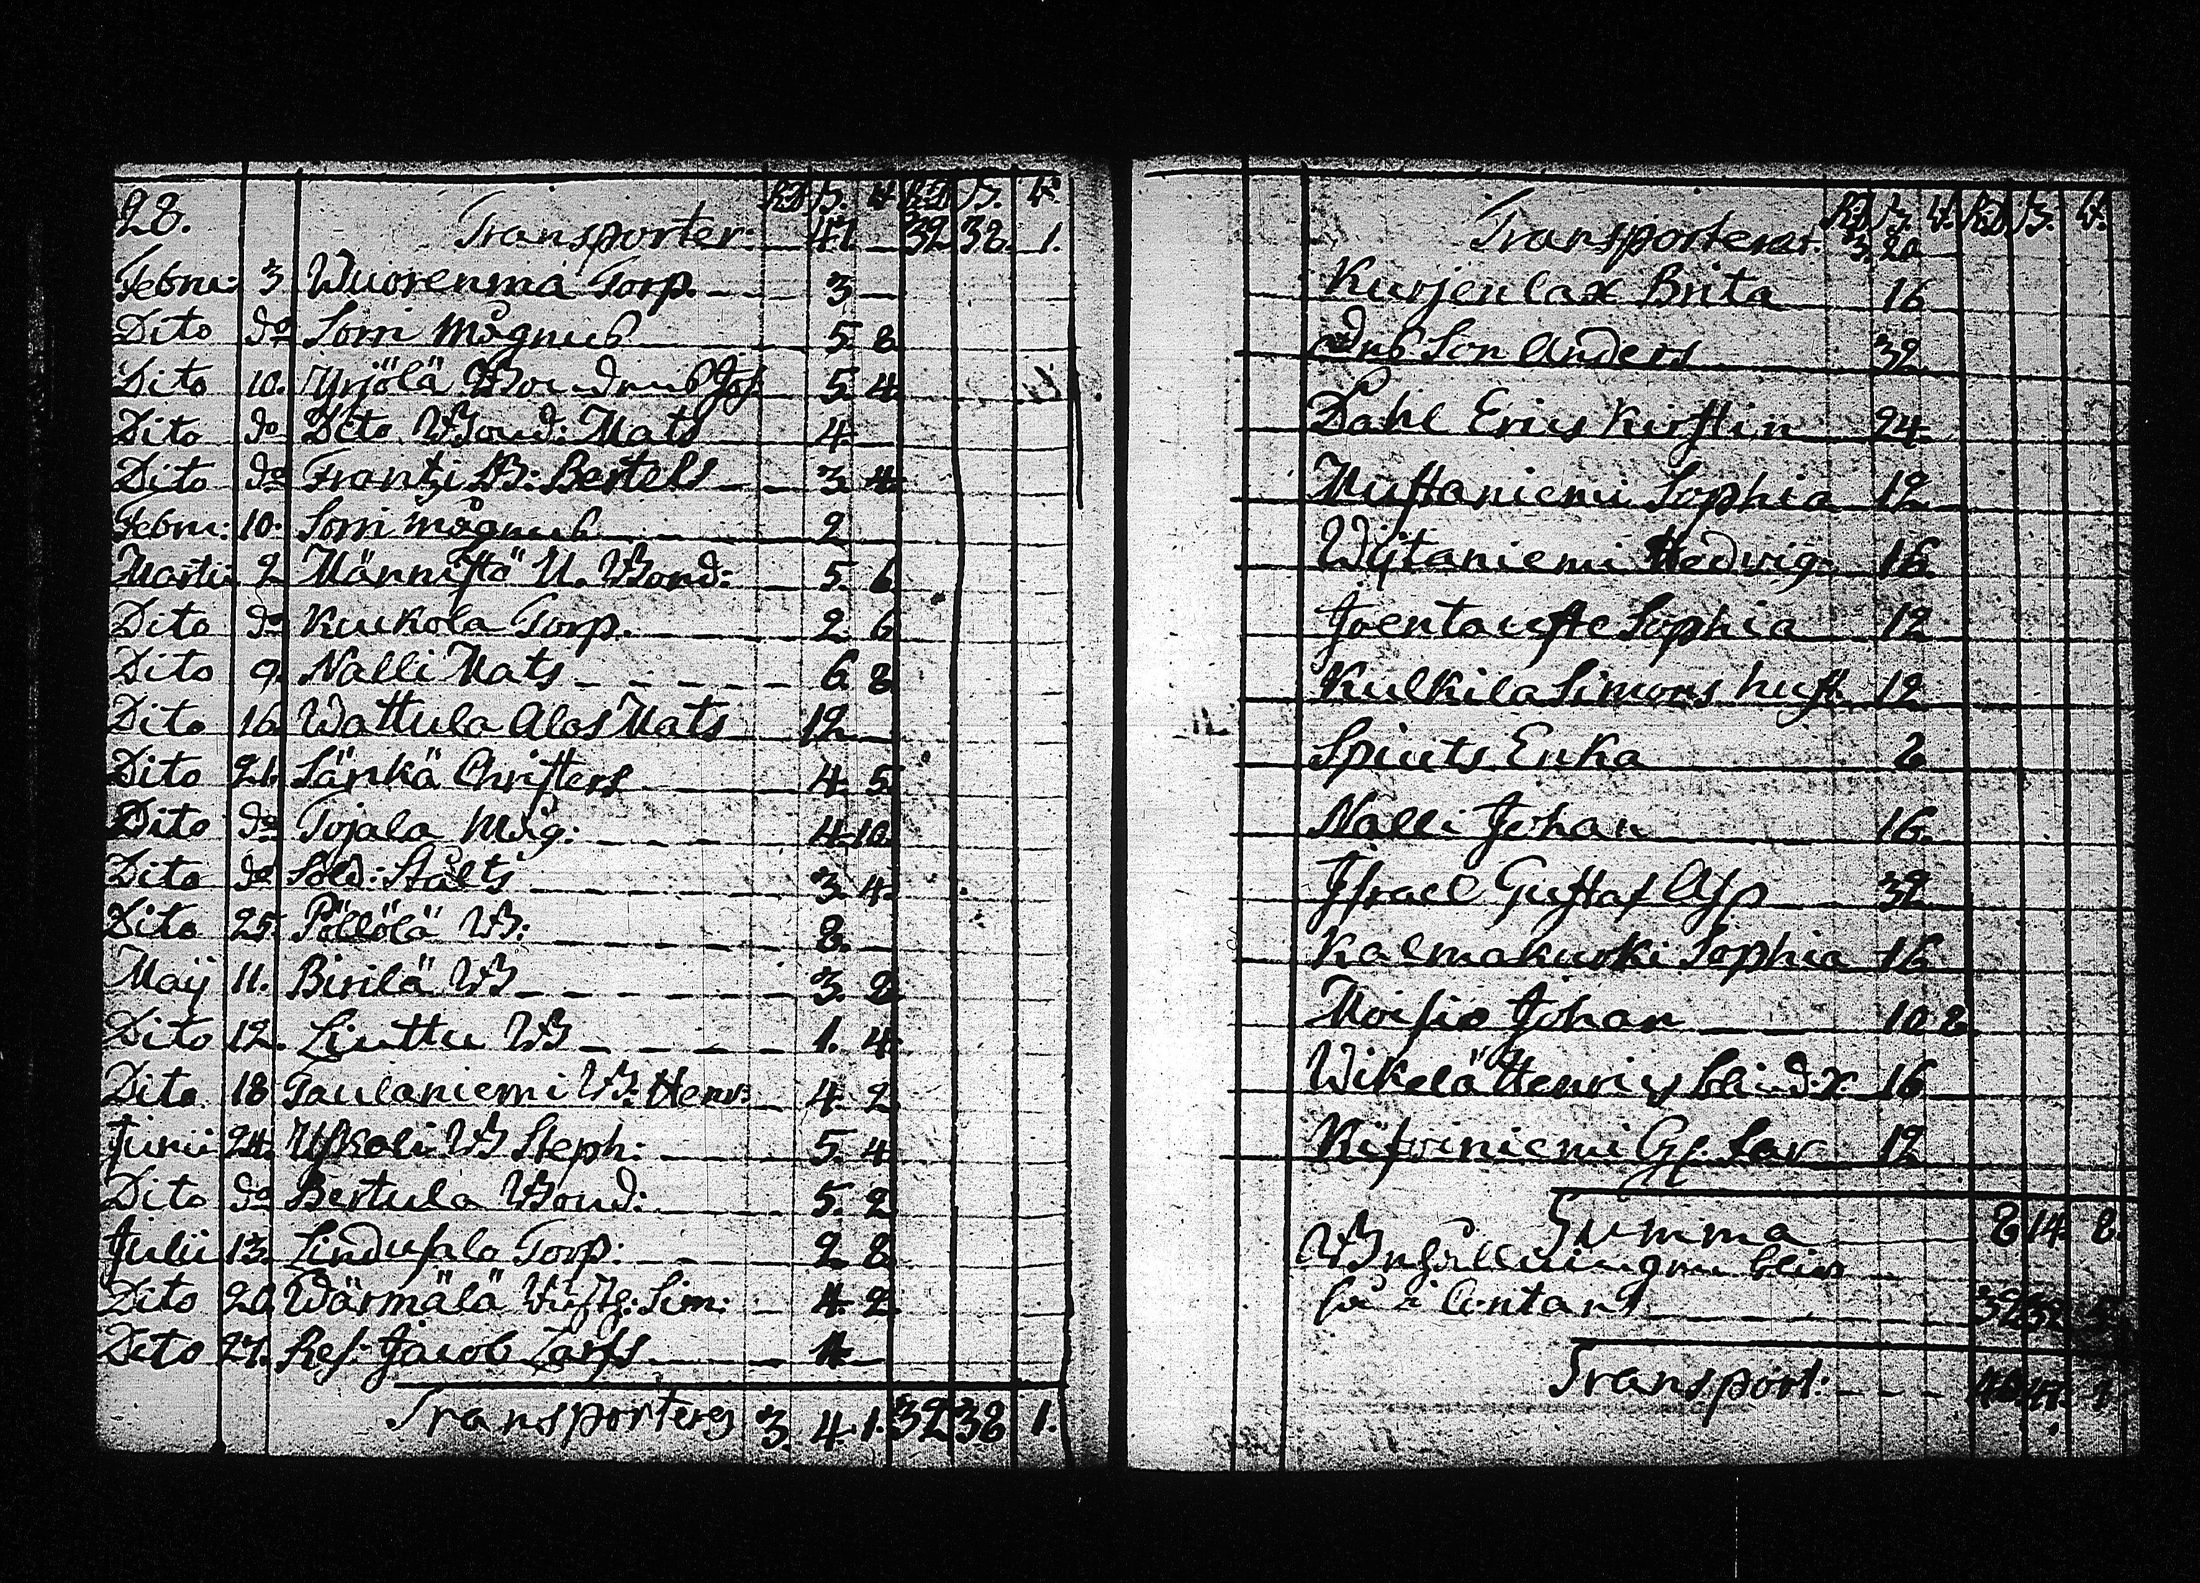 28. Rd ß. d. Rd ß. d.
Transporter: 47. 32 38. 1.
Febru: 3 Wuorenmä Torp. 3
Dito do Sorri Mågnus 5 8
Dito 10. Yrjölä Jos. 5. 4
Dito do Dito Bond: Mats 4.
Dito do Frantzi B: Bertels 3 4
Febru: 10. Sorri Mågnus 2
Martii 2 Männistö U. Bond: 5 6
Dito do Kuukola Torp. 2 6
Dito 9. Nalli Mats 6 8
Dito 16 Wattula Alos Mats 12
Dito 21. Länkä Christers 4. 5
Dito do Tojala Måg: 4. 10.
Dito do Sold: Stålts 3. 4.
Dito 25. Pöllölä B: 8.
Maij 11. Birilä B 3. 8
Dito 12. Liuttu B 1. 4.
Dito 18 Taulaniemi B: Henr: 4. 2
Junii 24. Uskali B Steph: 5. 4
Dito do Bertula Bond: 5. 2
Julii 13. Lindusalo Torp: 2 8
Dito 20. Wärmälä Sim: 4. 2
Dito 27. Jacob Larss 4
Transporteras 3. 4. 1. 32 38 1.
Rd ß. d. Rd ß. d.
Transporterar. 3. 20
Kurjenlax Brita 16
Dns Son Anders 32
Dahl Erics Kirstin 24.
Mustaniemi Sophia 12
Wijtaniemi Hedvig 16.
Joentauste Sophia 12
Kulkila Simons hust. 12
Spints Erika 8
Nalli Johan 16.
Israel Gustaf Asp 32
Kalmakurki Sophia 16
Moisio Johan 10 8
Wikelä Henrics blind: 16
Kifwiniemi Lar 12
Summa 8 14. 8.
blir
i Contant 32 32 5.
Transport: 40. 47. 1